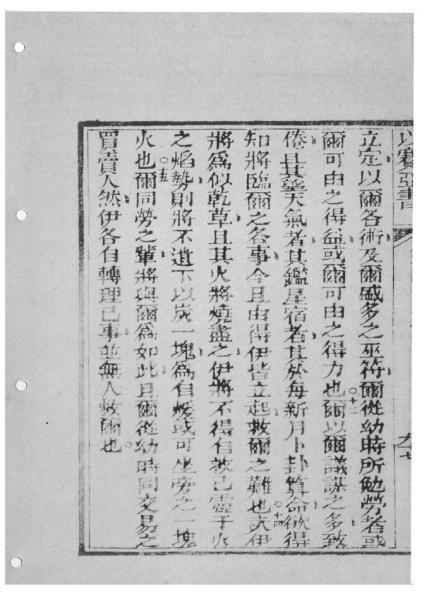 以賽亞書
立定以爾各術及爾盛多之巫符爾從幼時所勉勞者或
爾可由之得益或爾可由之得力也爾以爾議謀之多致
倦且其鑒天氣者其鑑星宿者其於每新月卜卦算命欲得
知將臨爾之各事今且由得伊皆立起救爾之難也夫伊
將為似乾草且其火將燒盡之伊將不得自救己靈于火
之焰勢則將不遺下以炭一塊為自煖或可坐旁之一塊
火也爾同勞之輩將與爾為如此且爾從幼時同交易之
買賣人然伊各自轉理己事並無人救爾也